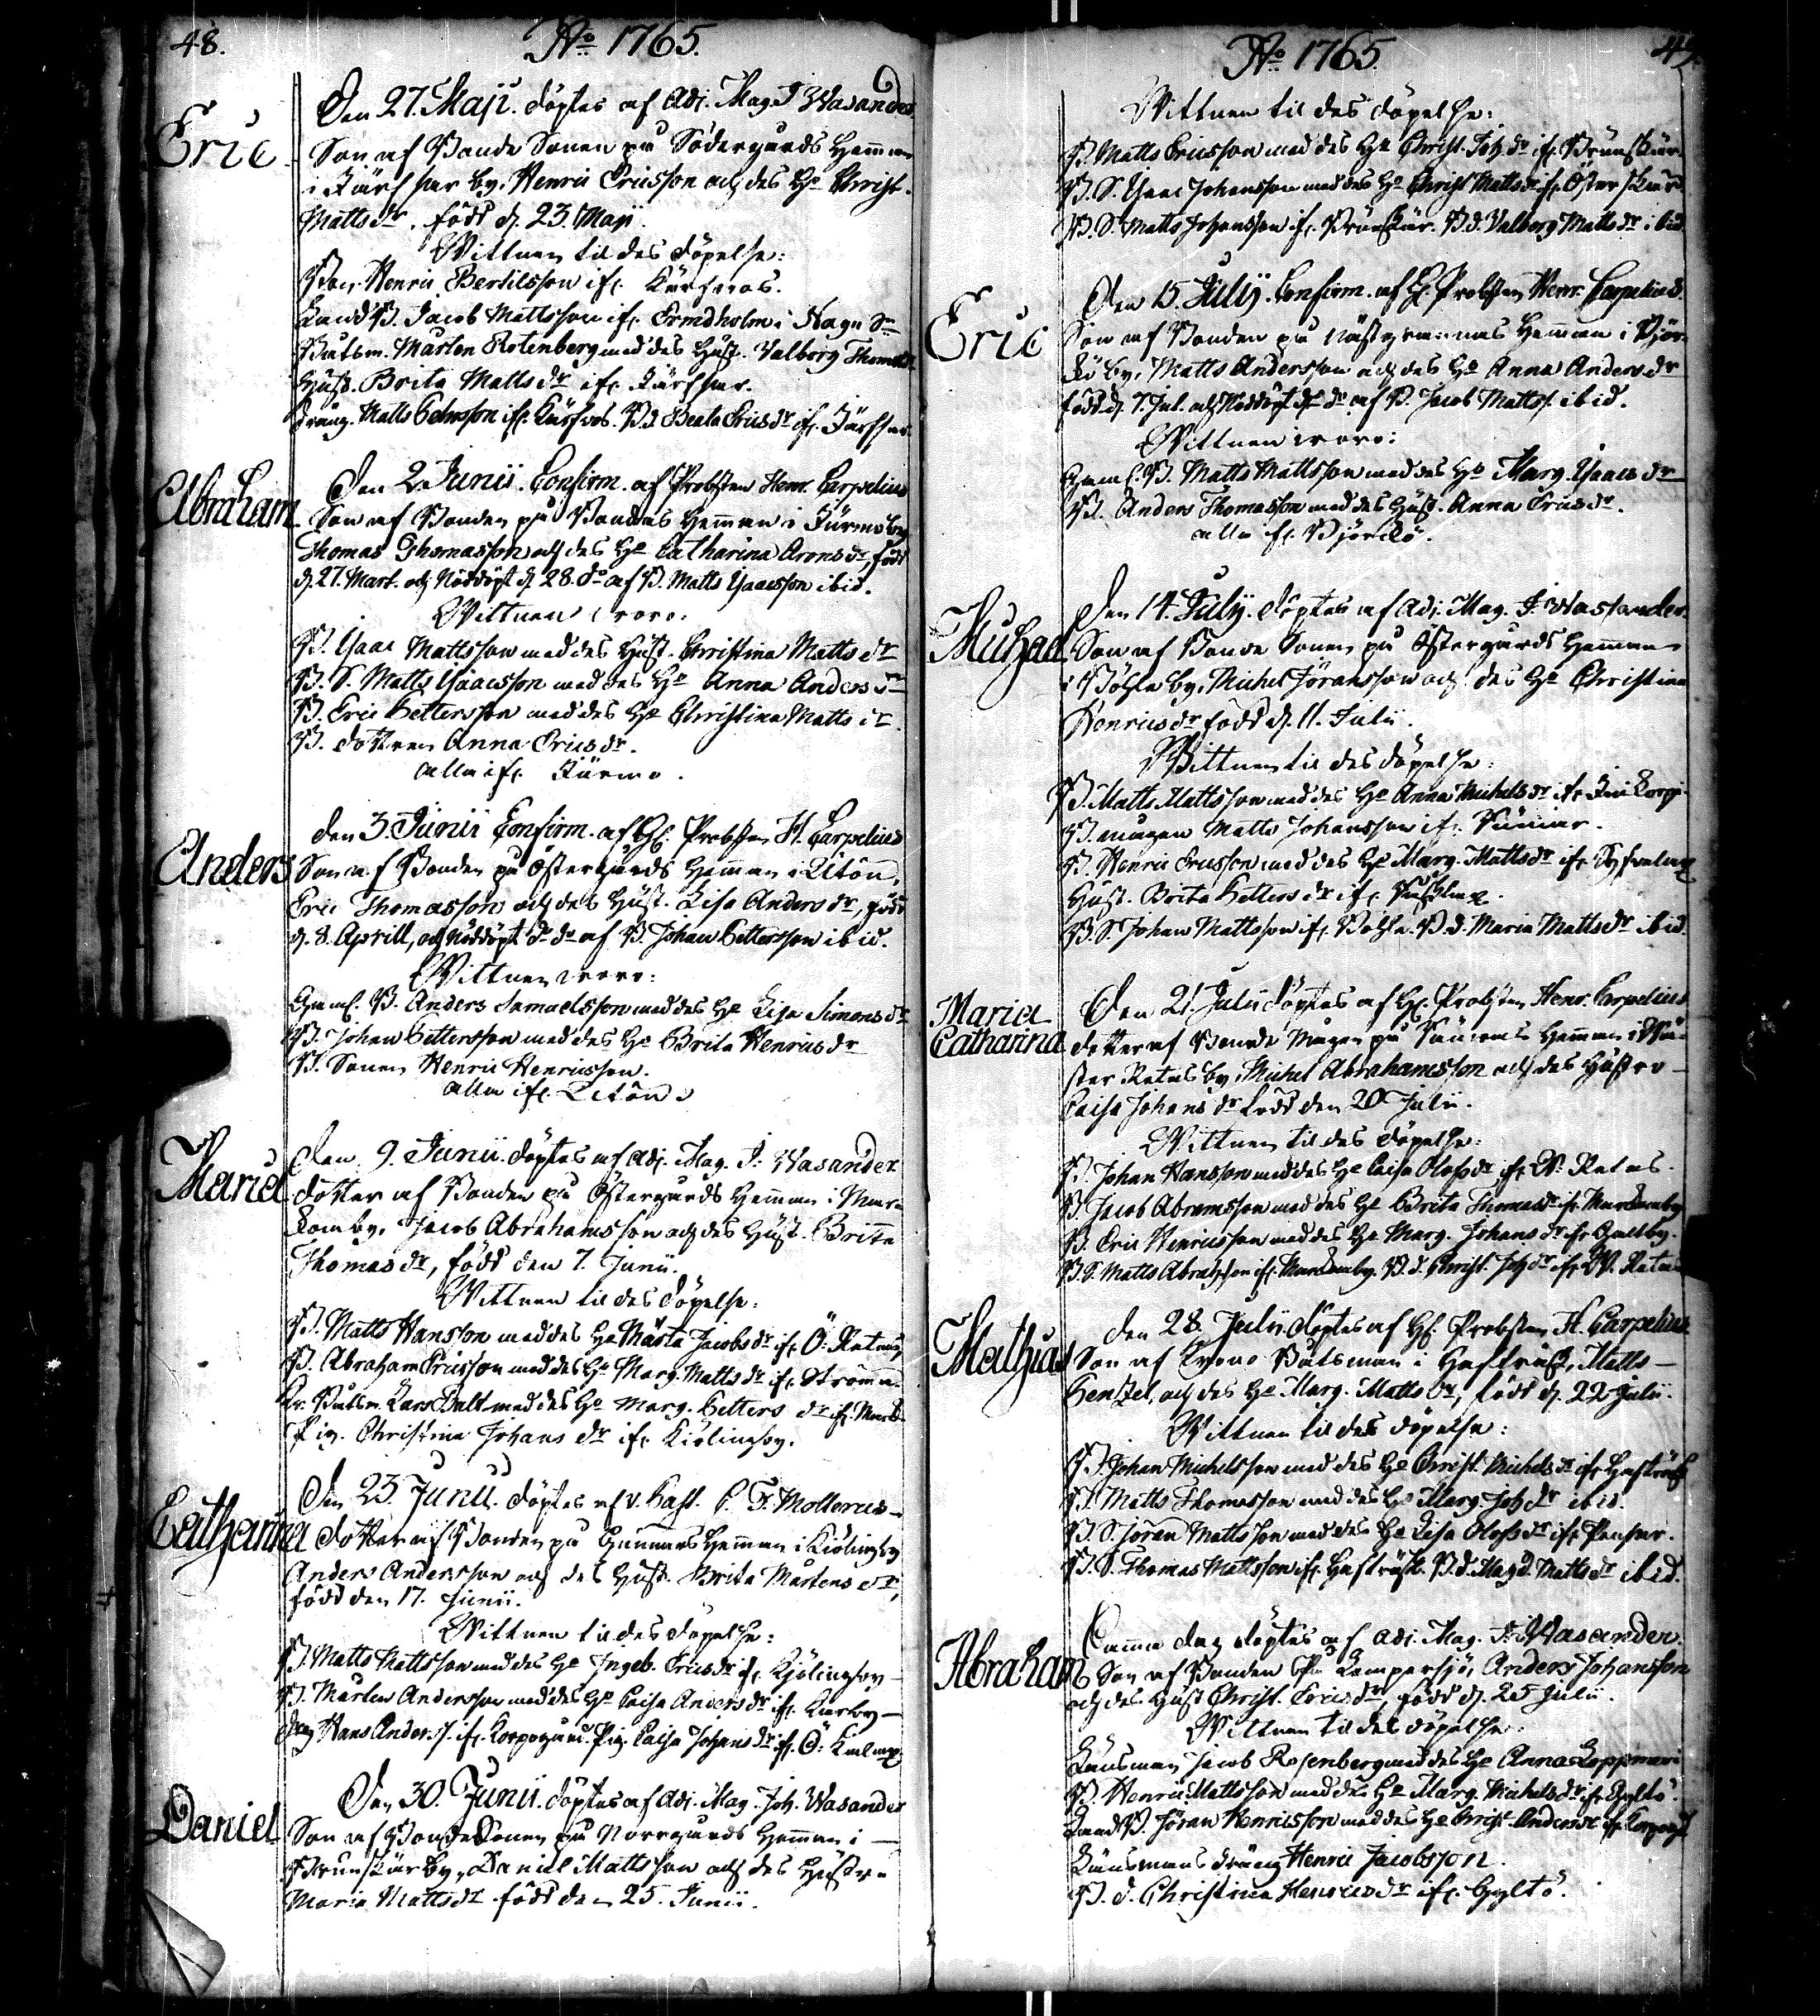 48.
No 1765.
Eric
Den 27. Maji. döptes af Adj. Mag. J Wasander
Son af Bonde Sonen på Södergårds Hemman
i by, Henric Ericsson och des Ho Christ.
Matts dr. född d. 23. Maji.
Wittnen til des döpelse:
Bon. Henric Bertilsson ifr. Kärsnäs.
Land B. Jacob Mattsson ifr. Ermdholm i Nagu Sn
Båtsm. Mårten Rotenberg med des Hust. Valborg Thomædr
Hust. Brita Matts dr ifr.
dräng. Matts ifr. Kärsnäs. B.d. Beata Erics dr ifr.
Abraham
Den 2 Junii. Confirm. af Probsten Henr. Carpelius
Son af Bonden på Bondas Hemman i Jürmo by
Thomas Thomasson och des Ho Catharina Arons dr, född
d. 27. Mart. och Nöddöpt d 28. do af B. Matts Isaacsson ibid.
Wittnen woro:
B. Isaac Mattsson med des Hust. Christina Matts dr
B. S. Matts Isaacsson med des Ho Anna Anders dr
B. Eric Pettersson med des Ho Christina Matts dr.
B. dottren Anna Erics dr.
alla ifr. Jürmo.
Anders
den 3. Junii Confirm. af H. Probsten H. Carpelius
Son af Bonden på Östergårds Hemman i Utön,
Eric Thomasson och des Hust. Lisa Anders dr, född
d. 8. Aprill, och Nöddöpt do do af B. Johan Pettersson ibid.
Wittnen woro:
Gaml. B. Anders Samuelsson med des Ho Lisa Simons dr
B. Johan Pettersson med des Ho Brita Henrics dr
B. Sonen Henric Henricsson.
alla ifr. Utön.
Maria
Den 9. Junii. döptes af Adj. Mag. J. Wasander
dotter af Bonden på Östergårds Hemman i Mar-
by, Jacob Abrahamsson och des Hust. Brita
Thomas dr, född den 7. Junii.
Wittnen til des döpelse:
B. Matts Hansson med des Ho Märta Jacobs dr ifr. Ö: Retais
B. Abraham Ericsson med des Ho Marg. Matts dr ifr. Strömma.
Kr. Båtsm. Lars Dalt med des Ho Marg. Petters dr ifr.
Pig. Christina Johans dr ifr. Kiölingby.
Catharina
Den 23. Junii. döptes af v. Past. P. F. Mollerus
dotter af Bonden på Gunnars Hemman i Kiölingby
Anders Andersson och des Hust. Brita Mårtens dr,
född den 17. Junii.
Wittnen til des döpelse:
B. Matts Mattsson med des Ho Ingeb. Erics dr ifr. Kjölingby
B. Mårten Andersson med des Ho Caisa Anders dr ifr. Karby
dreng Hans Anders. ifr. Korpogård. Pig. Caisa Johans dr ifr. Ö:
Daniel
Den 30. Junii. döptes af Adj. Mag. Joh. Wasander
Son af Bonde Sonen på Norrgårds Hemman i
Brunskär by, Daniel Mattsson och des Hustru
Maria Matts dr född den 25. Junii.
No 1765.
49.
Wittnen til des döpelse:
B. Matts Ericsson med des Ho Christ. Joh. dr ifr. Brunskär.
B. S. Isaac Johansson med des Ho Christ Matts dr ifr. Österskär.
B. S. Matts Johansson ifr. Brunskär. B.d. Valborg Matts dr ibid.
Eric
Den 15. Julij. Confirm. af H. Probsten Henr. Carpelius.
Son af Bonden på Nästgrannas Hemman i Björ-
kö by, Matts Andersson och des Ho Anna Anders dr
född d. Jul. och Nöddöpt do do af B. Jacob Mattss. ibid.
Wittnen woro:
Gaml. B. Matts Mattsson med des Ho Marg. Isaacs dr
B. Anders Thomasson med des Hust. Anna Erics dr.
alla ifr. Björkö.
Michael
Den 14. Julij. döptes af Adj. Mag. J. Wasander.
Son af Bonde Sonen på Östergårds Hemman
i by, Michel Jöransson och des Ho Christina
Henrics dr född d. 11. Julii.
Wittnen til des döpelse:
B. Matts Mattsson med des Ho Anna Michels dr ifr.
B. mågen Matts Johansson ifr.
B. Henric Ericsson med des Ho Marg. Matts dr ifr.
Hust. Brita Petters dr ifr.
B. S. Johan Mattsson ifr. B.d. Maria Matts dr ibid.
Maria
Catharina
Den 21. Julii döptes af H. Probsten Henr. Carpelius
dotter af Bonde Mågen på Hemman i Wä-
ster Retais by, Michel Abrahamsson och des Hustro
Caisa Johans dr född den 20 Julii.
Wittnen til des döpelse:
B. Johan Hansson med des Ho Caisa Olofs dr ifr. W. Retais.
B. Jacob Abramsson med des Ho Brita Thomæ dr ifr.
B. Eric Henricsson med des Ho Marg. Johans dr ifr. Galtby.
B. S. Matts ifr. B.d. Christ. Joh. dr ifr. W. Retais
Mathias
Den 28. Julii döptes af H. Probsten H. Carpelius
Son af Krono Båtsman i Matts
och des Ho Marg. Matts dr, född d. 22 Julii.
Wittnen til des döpelse:
B. Johan Michelsson med des Ho Christ. Michels dr ifr.
B. Matts Thomasson med des Ho Marg. Joh dr ibid.
B. S. Jöran Mattsson med des Ho Lisa Olofs dr ifr.
B. S. Thomas Mattsson ifr. B.d. Magd. Matts dr ibid.
Abraham
Samma dag döptes af Adj. Mag. J. Wasander.
Son af Bonden på Lempersjö, Anders Johansson
och des Hust Christ. Erics dr, född d. 25 Julii.
Wittnen til des döpelse:
Länsman Jacob Rosenberg med des Ho Anna
B. Henric Mattsson med des Ho Marg. Michels dr ifr. Gyltö.
Land B. Jöran Henricsson med des Ho Christ. Anders dr ifr.
Länsmans dräng Henric Jacobsson.
B. d. Christina Henrics dr ifr. Gyltö.